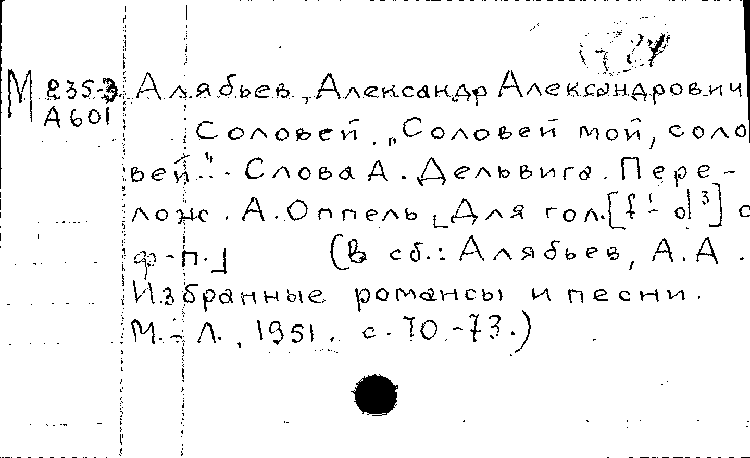 М 235-3 Алябьев, Александр Александрович
А 601
Соловей. „Соловей мой, соло
вей". Слова А. Дельвига. Пере-
лож. А. Оппель [Для гол.[f¹-d³] с
ф-п.] (В сб.: Алябьев, А.А.
Избранные романсы и песни.
М.-Л., 1951. с. 70-73.)